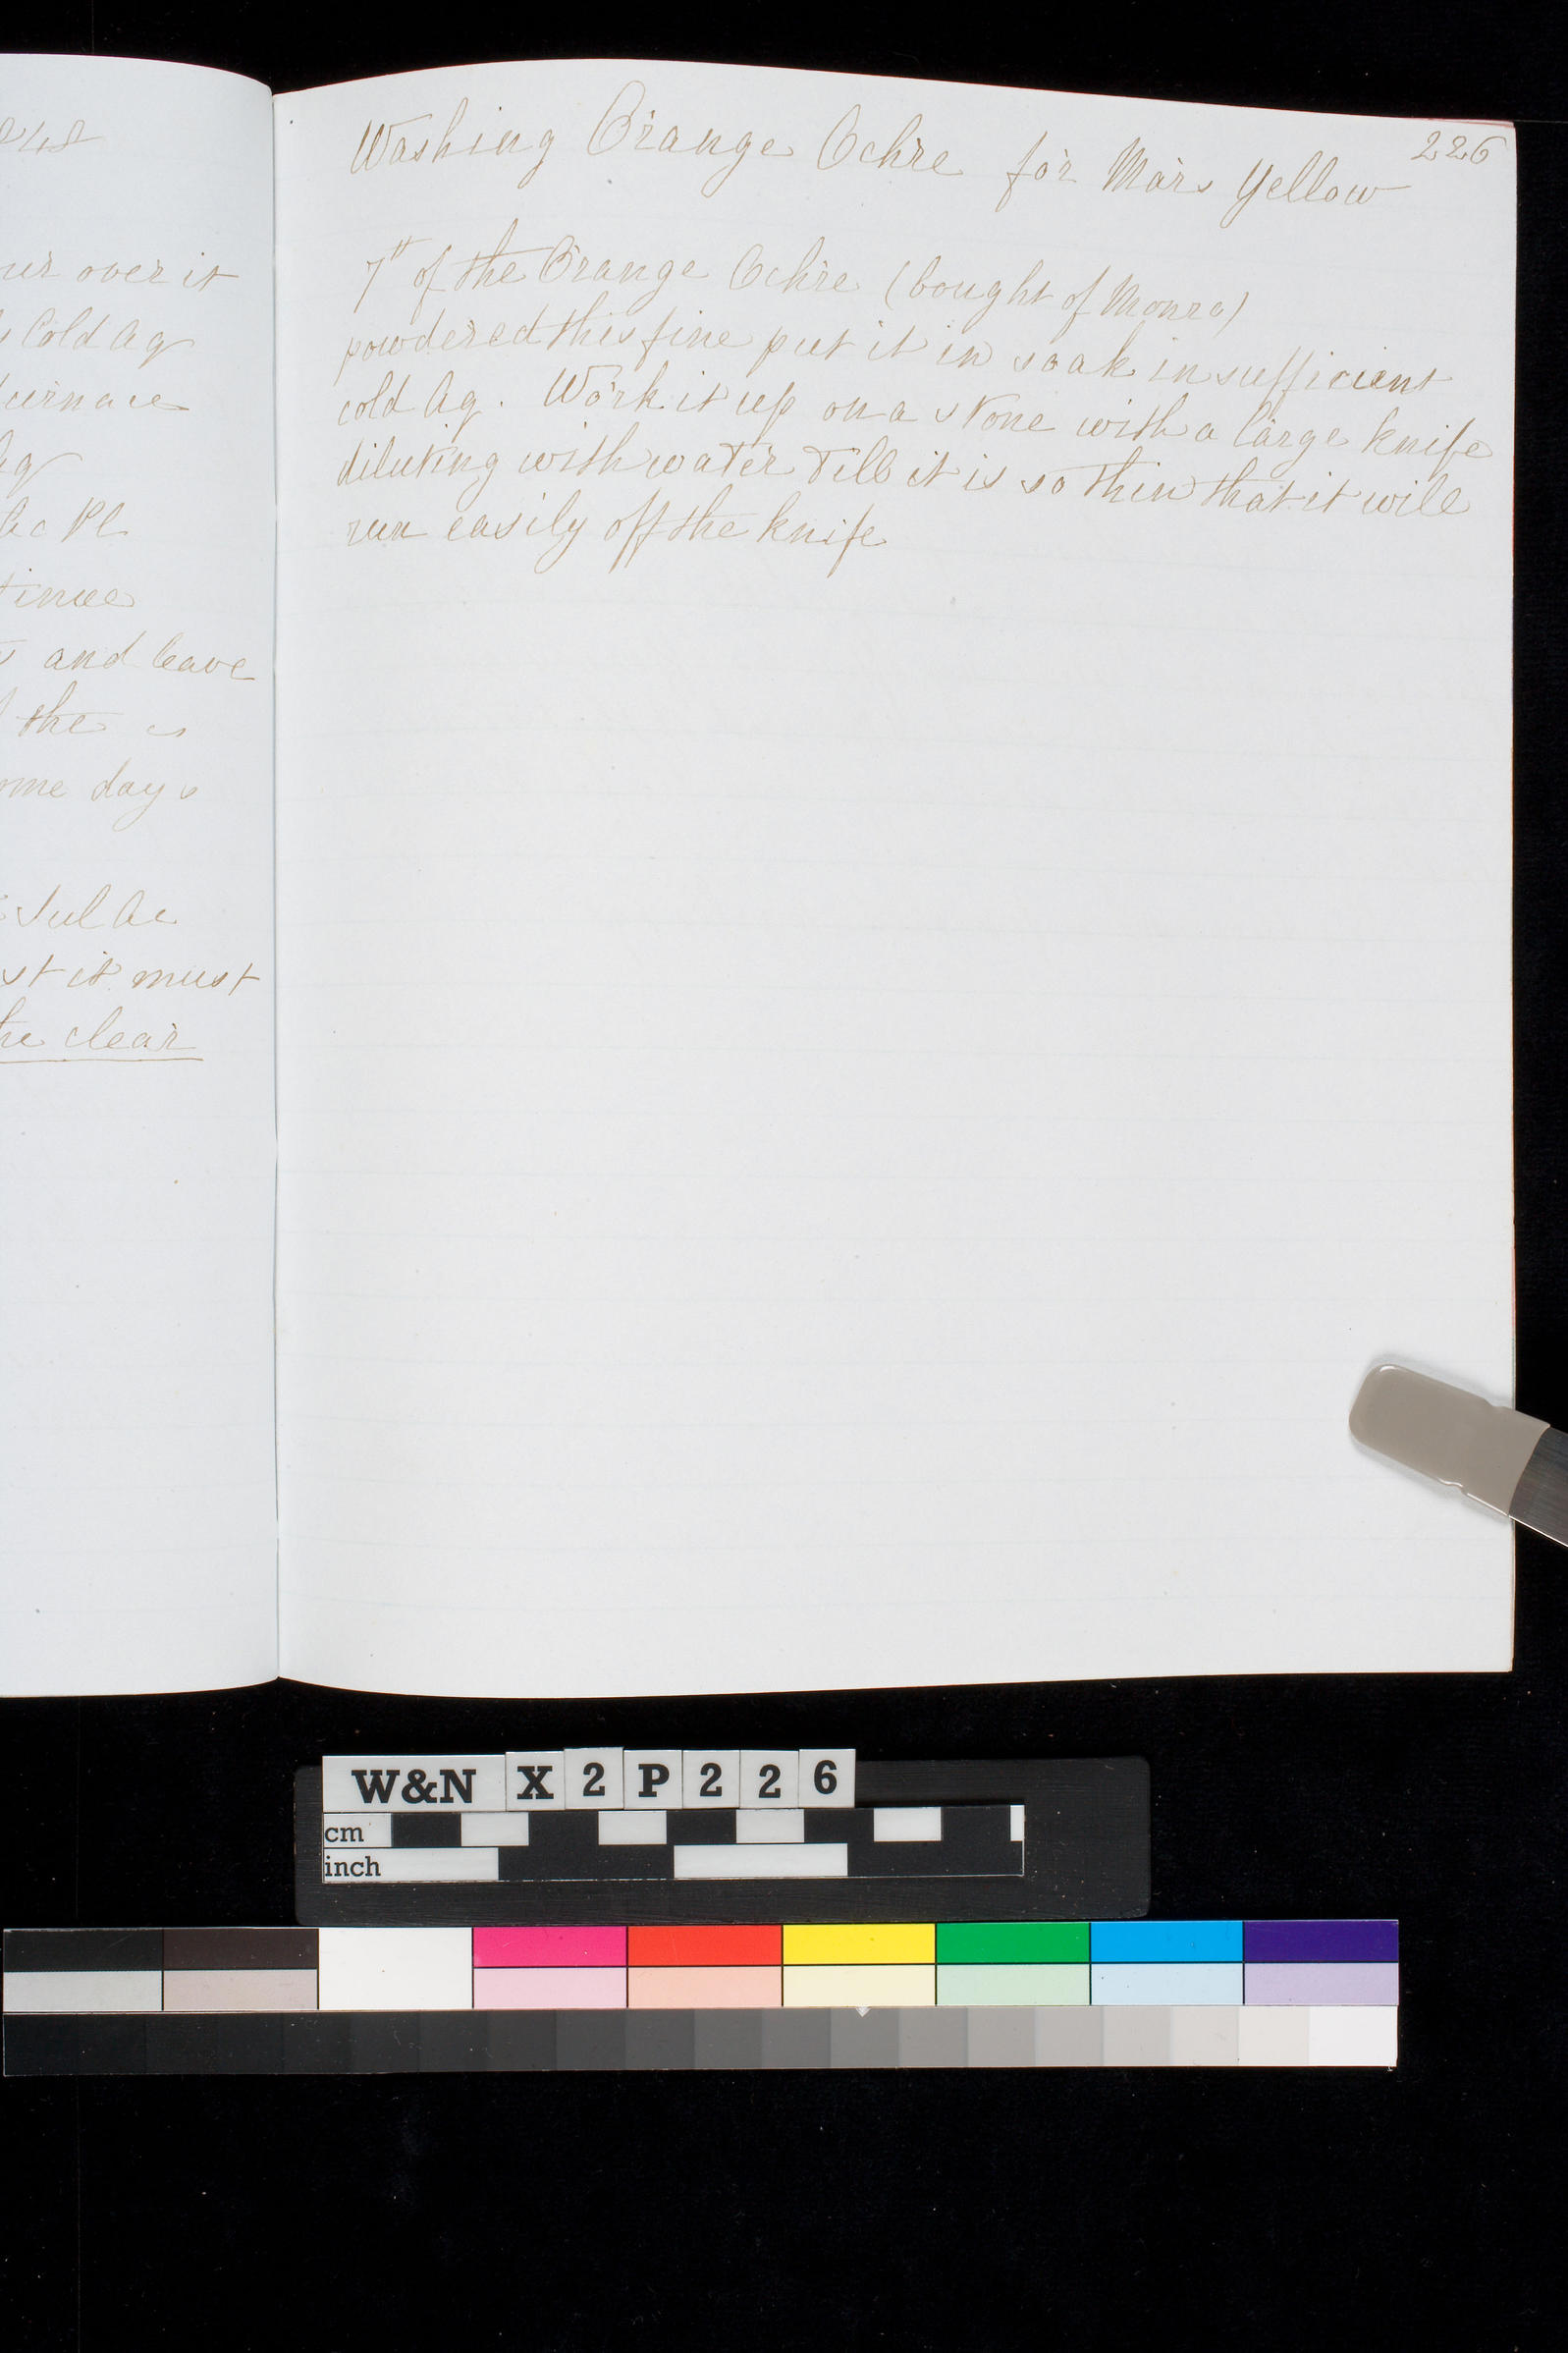 248
ur over it
Cold Aq
furnace
Aq
Ac Pl
tinue
and leave
the is
ome days
Sul Ac
st it must
he clear
226
Washing Orange Ochre for Mars Yellow
7" of the Orange Ochre (bought of Monro)
powdered this fine put it in soak in sufficient
cold Aq. Work it up on a stone with a large knife
diluting with water till it is so thin that it will
run easily off the knife
W&N X2P226
cm
inch